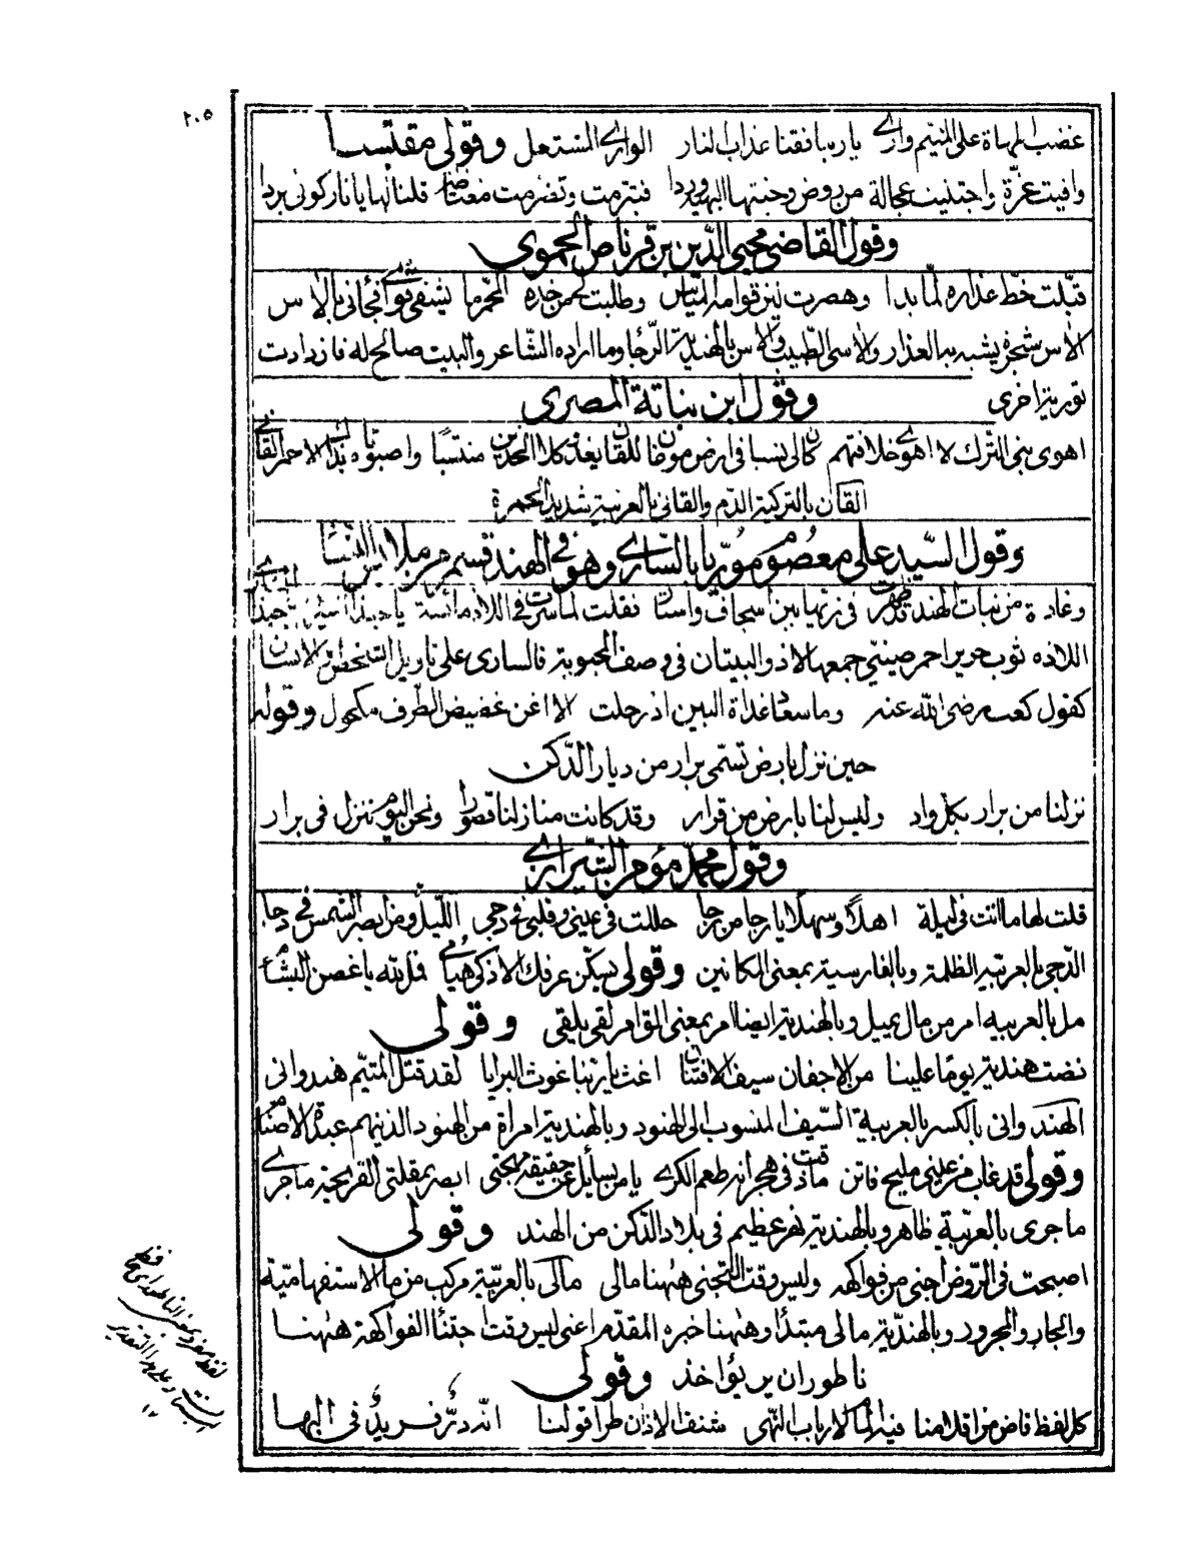 ٢٠٥
غضب المهاة على المتيم واري يا ربنا فقنا عذاب النار الواري المشتعل وقولي مقتبسا
وافيت عزة واجتنيت عجالة من روض وجنتها البهية وردا فتبرمت وتضرمت مغتاضة قلنا لها يا نار كوني بردا
وقول القاضي محيي الدين بن قرناص الحموي
قبّلت خط عذاره لما بدا وهصرت لين قوامه المياس وطلبت لخمر خده المحرّ ما يشفي جواي فجاني بالآس
الآس شجرة يشبه به العذار والآسي الطبيب والآس بالهندية الرجا وما اراده الشاعر والبيت صالح له فازدادت
تورية اخرى وقول ابن نباتة المصري
اهوى بني الترك لا اهوى خلافتهم كم الى نسبا في ارض موقان للقان يغدو كلا الخدين منتسبًا واصبوتاه بذاك الاحمر القاني
القان بالتركية الدم والقاني بالعربية شديد الحمرة
وقول السيد علي معصوم مورّيا بالساري وهو في الهند قسم من ملابس النسا
وغادة من نبات الهند قد ظهرت في زيها بين اسجاف واستار فقلت لما سرت في اللاد مائسة يا حبذا
اللاده ثوب حرير احمر صيني جمعها لاذ والبيتان في وصف المحبوبة فالساري على تاويل الشخص او الانسان
كقول كعب رضي الله عنه وما سعاد غداة البين اذ رحلت الا اغن غضيض الطرف مكحول وقوله
حين نزل بارض تسمى برار من ديار الدكن
نزلنا من برار بكل واد وليس لنا بارض من قرار وقد كانت منازلنا قصورا ونحن اليوم ننزل في برار
وقول محمد مؤمن الشيرازي
قلت لها ما انت في ليلة اهلًا وسهلًا يا رجا من رجا حللت في عيني وقلبي في دجي الليل ومن ابصر الشمس في دجا
الدجى بالعربية الظلمة وبالفارسية بمعنى المكانين وقولي يسكّن عرفك الاذكى هيامي فمل بالله يا غصن البشام
مل بالعربية امر من مال يميل وبالهندية ايضا امر بمعنى الق امر لقي يلقى وقولي
نضت هندية يومًا علينا من الاجفان سيف الافتتان اغث يا ربنا غوث البرايا لقد قتل المتيم هندواني
الهندواني بالكسر بالعربية السيف المنسوب الى الهنود وبالهندية امراة من الهنود الذين هم عبدة الاصنام
وقولي قد غاب من عيني مليح فاتن ما ذقت في هجرانه طعم الكرى يا من يسائل عن حقيقة مهجتي ابصر بمقلتي القريحة ما جرى
ما جرى بالعربية ظاهر وبالهندية نهر عظيم في بلاد الدكن من الهند وقولي
اصبحت في الروض اجني من فواكهه وليس وقت التجني ههنا مالي مالي بالعربية مركب من ما الاستفهامية
والجار والمجرور وبالهندية مالي مبتدأ وههنا خبره المقدم اعني ليس وقت اجتناء الفواكهة ههنا
ناطوران يريؤاخذ وقولي
كل لفظ فاض من اقلامنا فيه لارباب النهى شنف الاذان طرا قولنا انه در فريد في البها